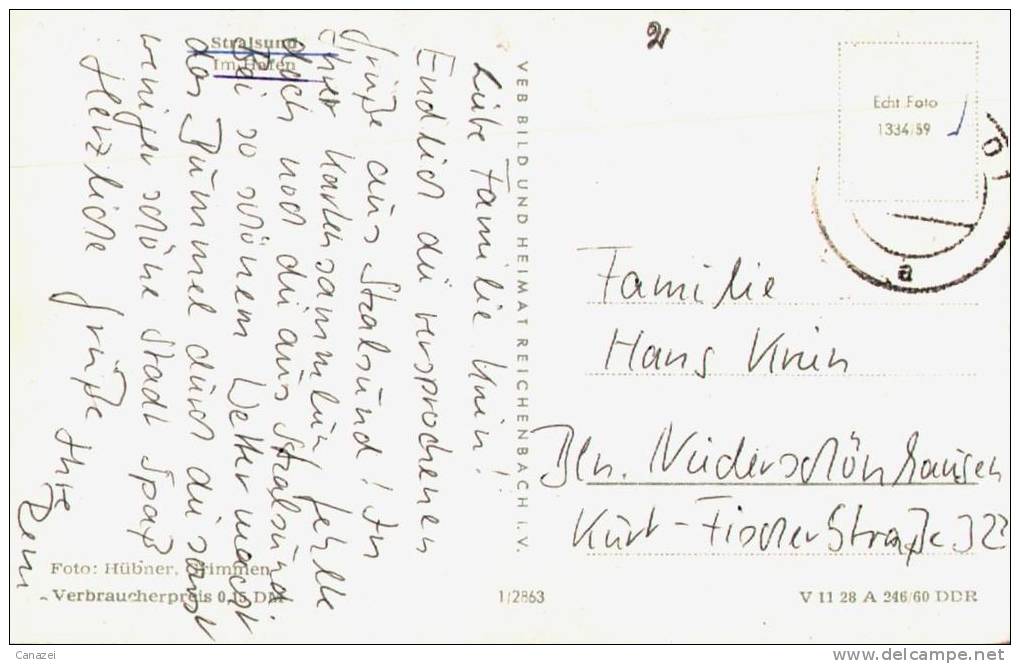 Stralsund
Im Hafen
Liebe Familie
Endlich die versprochenen
Grüße aus Stralsund! In
Ihrer Kartensammlung fehlte
doch noch die aus Stralsund.
Bei so schönem Wetter macht
das Bummel durch die sonst
weniger schöne Stadt Spaß
Herzliche Grüße Ihre
VEB BILD UND HEIMAT REICHENBACH I. V.
Echt Foto
1334/59
a
Familie
Hans
Bln. Niederschönhausen
Kurt-Fischer Straße 32
Foto: Hübner, Grimmen
Verbraucherpreis 0,15 DM
1/2863
V 11 28 A 246/60 DDR
Canazei
www.delcampe.net